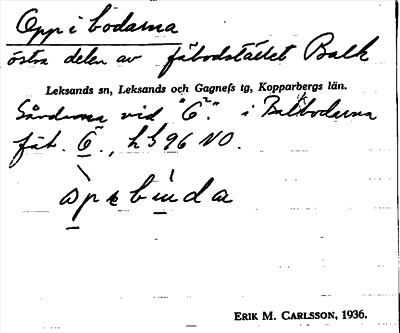 Opp i bodarna
östra delen av fäbodstället Balk
Leksands sn, Leksands och Gagnefs tg, Kopparbergs län.
Gårdarna vid "6²." i Balkbodarna
fäb. 6., hs 96 NO.
ERIK M. CARLSSON, 1936.